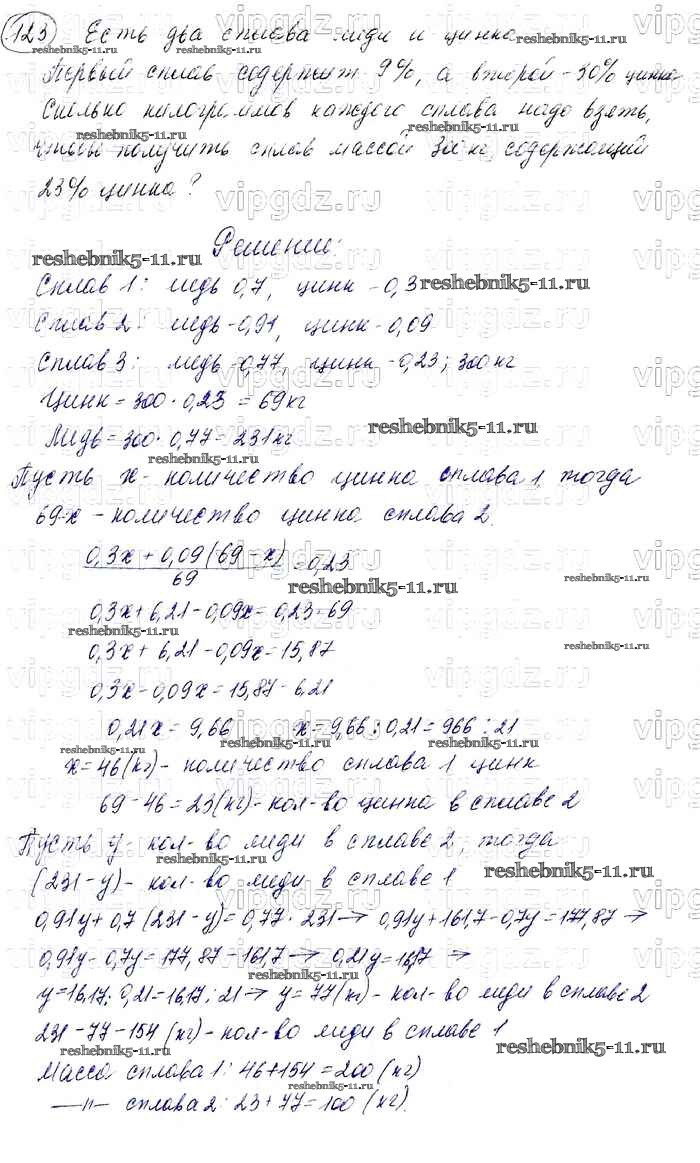 123 Есть два сплава меди и цинка.
Первый сплав содержит 9%, а второй - 30% цинка.
Сколько килограммов каждого сплава надо взять,
чтобы получить сплав массой 300 кг, содержащий
23% цинка?
Решение:
Сплав 1: медь 0,7, цинк - 0,3
Сплав 2: медь - 0,91, цинк - 0,09
Сплав 3: медь - 0,77, цинк - 0,23; 300 кг
Цинк = 300 · 0,23 = 69 кг
Медь = 300 · 0,77 = 231 кг
Пусть x - количество цинка сплава 1, тогда
69-x - количество цинка сплава 2.
0,3x + 0,09(69-x)/69 = 0,23
0,3x + 6,21 - 0,09x = 0,23 · 69
0,3x + 6,21 - 0,09x = 15,87
0,3x - 0,09x = 15,87 - 6,21
0,21x = 9,66 x = 9,66 : 0,21 = 966 : 21
x = 46 (кг) - количество сплава 1 цинк
69 - 46 = 23 (кг) - кол-во цинка в сплаве 2
Пусть y - кол-во меди в сплаве 2, тогда
(231-y) - кол-во меди в сплаве 1
0,91y + 0,7(231-y) = 0,77 · 231 → 0,91y + 161,7 - 0,7y = 177,87 →
0,91y - 0,7y = 177,87 - 161,7 → 0,21y = 16,17 →
y = 16,17 : 0,21 = 16,17 : 21 → y = 77 (кг) - кол-во меди в сплаве 2
231 - 77 - 154 (кг) - кол-во меди в сплаве 1
Масса сплава 1: 46 + 154 = 200 (кг)
—"— сплава 2: 23 + 77 = 100 (кг).
reshebnik5-11.ru
vipgdz.ru